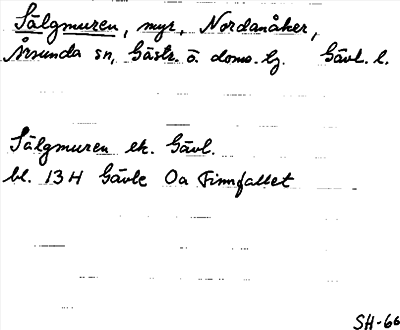 Sälgmuren, myr, Nordanåker,
Årsunda sn, Gästr. ö. doms. Gävl. l.
Sälgmuren ek. Gävl.
bl. 13H Gävle 0a Finnfallet
SH-66